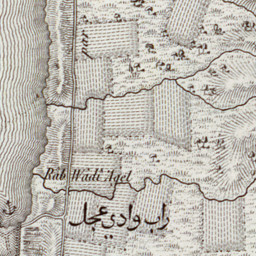 Râb Wâdî Agel
راب وادي عجل